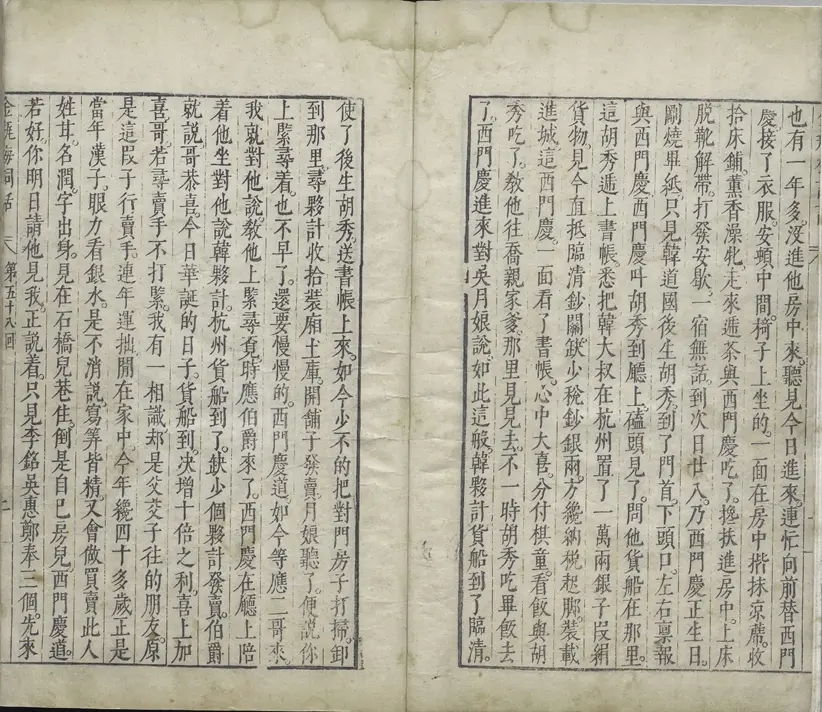 也有一年多没進他房中來。聽見今日進來。連忙向前替西門
慶接了衣服。安頓中間。椅子上坐的。一面在房中揩抹涼蓆。收
拾床鋪。薰香澡牝。走來遞茶與西門慶吃了。攙扶進房中。上床
脫靴解帶。打發安歇。一宿無話。到次日廿八。乃西門慶正生日。
剛燒畢紙。只見韓道國後生胡秀。到了門首。下頭口。左右禀報
與西門慶。西門慶叫胡秀到廳上。磕頭見了。問他貨船在那里。
這胡秀遞上書帳。悉把韓大叔在杭州置了一萬兩銀子叚絹
貨物。見今直抵臨清鈔關。缺少稅鈔銀兩。方纔納稅起脚。裝載
進城。這西門慶。一面看了書帳。心中大喜。分付棋童。看飯與胡
秀吃了。教他往喬親家爹。那里見見去。不一時胡秀吃畢飯去
了。西門慶進來。對吳月娘說。如此這般。韓夥計貨船到了臨清。
使了後生胡秀。送書帳上來。如今少不的把對門房子打掃。卸
到那里。尋夥計收拾裝廂土庫。開舖子發賣。月娘聽了。便說你
上緊尋着。也不早了。還要慢慢的。西門慶道。如今等應二哥來。
我就對他說。教他上緊尋覓。時應伯爵來了。西門慶在廳上陪
着他坐。對他說韓夥計。杭州貨船到了。缺少個夥計發賣。伯爵
就說哥恭喜。今日華誕的日子。貨船到。决增十倍之利。喜上加
喜。哥若尋賣手不打緊。我有一相識。却是父交子往的朋友。原
是這叚子行賣手。連年運拙。閒在家中。今年纔四十多歲。正是
當年漢子。眼力看銀水。是不消說。寫筭皆精。又會做買賣。此人
姓甘。名潤。字出身。見在石橋兒巷住。倒是自己房兒。西門慶道。
若好。你明日請他見我。正說着。只見李銘吳惠鄭奉三個。先來
金瓶梅詞話 八 第五十八回 二